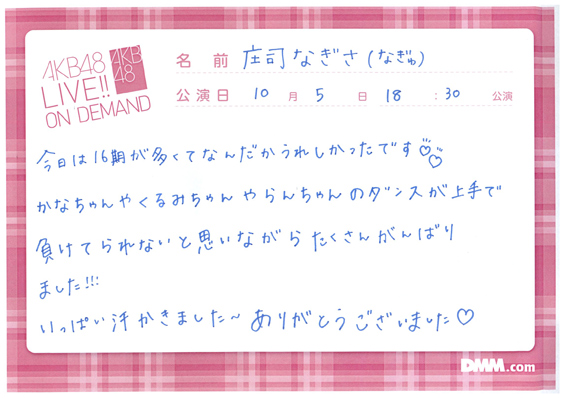 AKB48
LIVE!!
ON DEMAND
AKB
48
名前 庄司なぎさ(なぎゅ)
公演日 10月5日 18:30 公演
今日は16期が多くてなんだかうれしかったです♡♡
かなちゃんやくるみちゃんやらんちゃんのダンスが上手で
負けてられないと思いながらたくさんがんばり
ました!!!
いっぱい汗かきました〜ありがとうございました♡
DMM.com